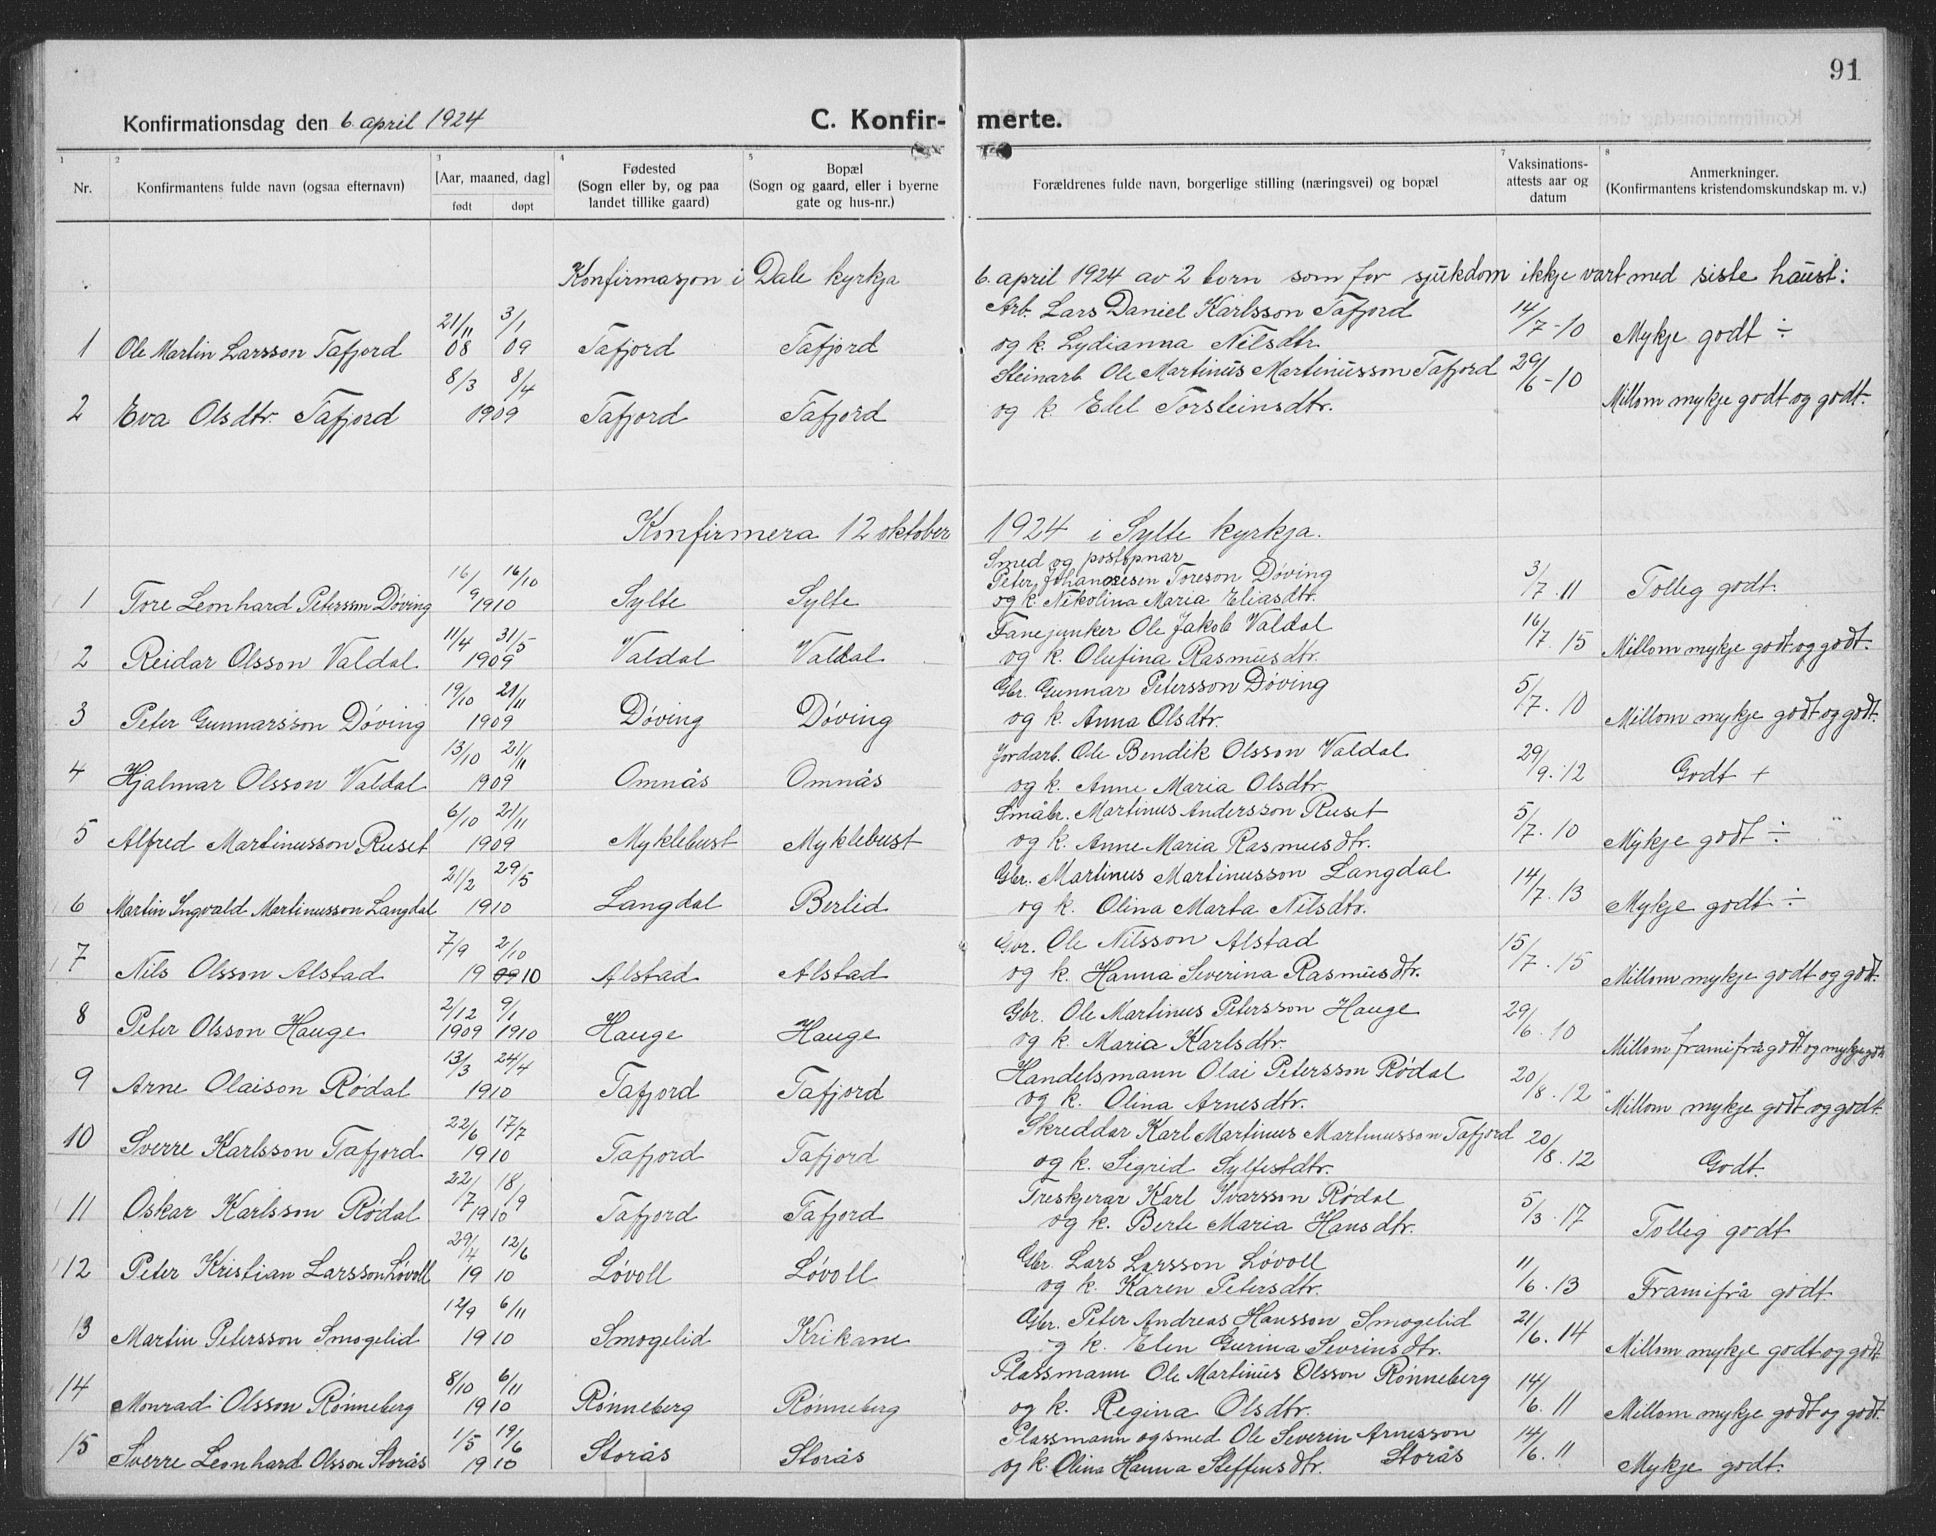 91
Konfirmationsdag den 6. april 1924 C. Konfir- merte.
1 2 3 4 5 7 8
Nr. Konfirmantens fulde navn (ogsaa efternavn) [Aar, maaned, dag] født døpt Fødested (Sogn eller by, og paa landet tillike gaard) Bopæl (Sogn og gaard, eller i byerne gate og hus-nr.) Forældrenes fulde navn, borgerlige stilling (næringsvei) og bopæl Vaksinations-attests aar og datum Anmerkninger. (Konfirmantens kristendomskundskap m. v.)
Konfirmasjon i Dale kyrkja 6. april 1924 av 2 born som for sjukdom ikkje vart med siste haust:
1 Ole Martin Larsson Tafjord 21/11 08 3/1 09 Tafjord Tafjord Arb. Lars Daniel Karlsson Tafjord og k. Lydianna Nilsdtr. 14/7-10 Mykje godt ÷
2 Eva Olsdtr. Tafjord 8/3 8/4 1909 Tafjord Tafjord Steinarb. Ole Martinus Martinusson Tafjord og k. Edel Torsteinsdtr. 29/6-10 Millom mykje godt og godt.
Konfirmera 12 oktober 1924 i Sylte kyrkja.
1 Tore Leonhard Petersson Døving 16/9 16/10 1910 Sylte Sylte Smed og postopnar Peter Johannesen Toreson Døving og k. Nikolina Maria Eliasdtr. 3/7.11 Tolleg godt.
2 Reidar Olsson Valdal 11/4 31/5 1909 Valdal Valdal Fanejunker Ole Jakob Valdal og k. Olufina Rasmusdtr. 16/7.15 Millom mykje godt og godt.
3 Peter Gunnarsson Døving 19/10 21/11 1909 Døving Døving Gbr. Gunnar Petersson Døving og k. Anna Olsdtr. 5/7.10 Millom mykje godt og godt.
4 Hjalmar Olsson Valdal 13/10 21/11 1909 Omnås Omnås Jordarb. Ole Bendik Olsson Valdal og k. Anne Maria Olsdtr. 29/9.12 Godt +
5 Alfred Martinusson Ruset 6/10 21/11 1909 Myklebust Myklebust Småbr. Martinus Andersson Ruset og k. Anne Maria Rasmusdtr. 5/7.10 Mykje godt ÷
6 Martin Ingvald Martinusson Langdal 21/2 29/5 1910 Langdal Berlid Gbr. Martinus Martinusson Langdal og k. Olina Marta Nilsdtr. 14/7.13 Mykje godt ÷
7 Nils Olsson Alstad 7/9 2/10 19 09 10 Alstad Alstad Gbr. Ole Nilsson Alstad og k. Hanna Severina Rasmusdtr. 15/7.15 Millom mykje godt og godt.
8 Peter Olsson Hauge 2/12 1909 9/1 1910 Hauge Hauge Gbr. Ole Martinus Petersson Hauge og k. Maria Karlsdtr. 29/6.10 Millom framifrå godt og mykje godt
9 Arne Olaison Rødal 13/3 24/4 1910 Tafjord Tafjord Handelsmann Olai Petersson Rødal og k. Olina Arnesdtr. 20/8.12 Millom mykje godt og godt.
10 Sverre Karlsson Tafjord 22/6 17/7 1910 Tafjord Tafjord Skreddar Karl Martinus Martinusson Tafjord og k. Sigrid Sylfestdtr. 20/8.12 Godt.
11 Oskar Karlsson Rødal 22/7 18/9 1910 Tafjord Tafjord Treskjerar Karl Ivarsson Rødal og k. Berte Maria Hansdtr. 5/3.17 Tolleg godt
12 Peter Kristian Larsson Løvoll 29/4 12/6 1910 Løvoll Løvoll Gbr. Lars Larsson Løvoll og k. Karen Petersdtr. 11/6.13 Framifrå godt
13 Martin Petersson Smogelid 12/9 6/11 1910 Smogelid Krikane Gbr. Peter Andreas Hansson Smogelid og k. Elen Gurina Sevrinsdtr. 21/6.14 Millom mykje godt og godt.
14 Monrad Olsson Rønneberg 8/10 6/11 1910 Rønneberg Rønneberg Plassmann Ole Martinus Olsson Rønneberg og k. Regina Olsdtr. 14/6.11 Millom mykje godt og godt.
15 Sverre Leonhard Olsson Storås 1/5 19/6 1910 Storås Storås Plassmann og smed Ole Severin Arnesson Storås og k. Olina Hanna Steffensdtr. 14/6.11 Mykje godt.